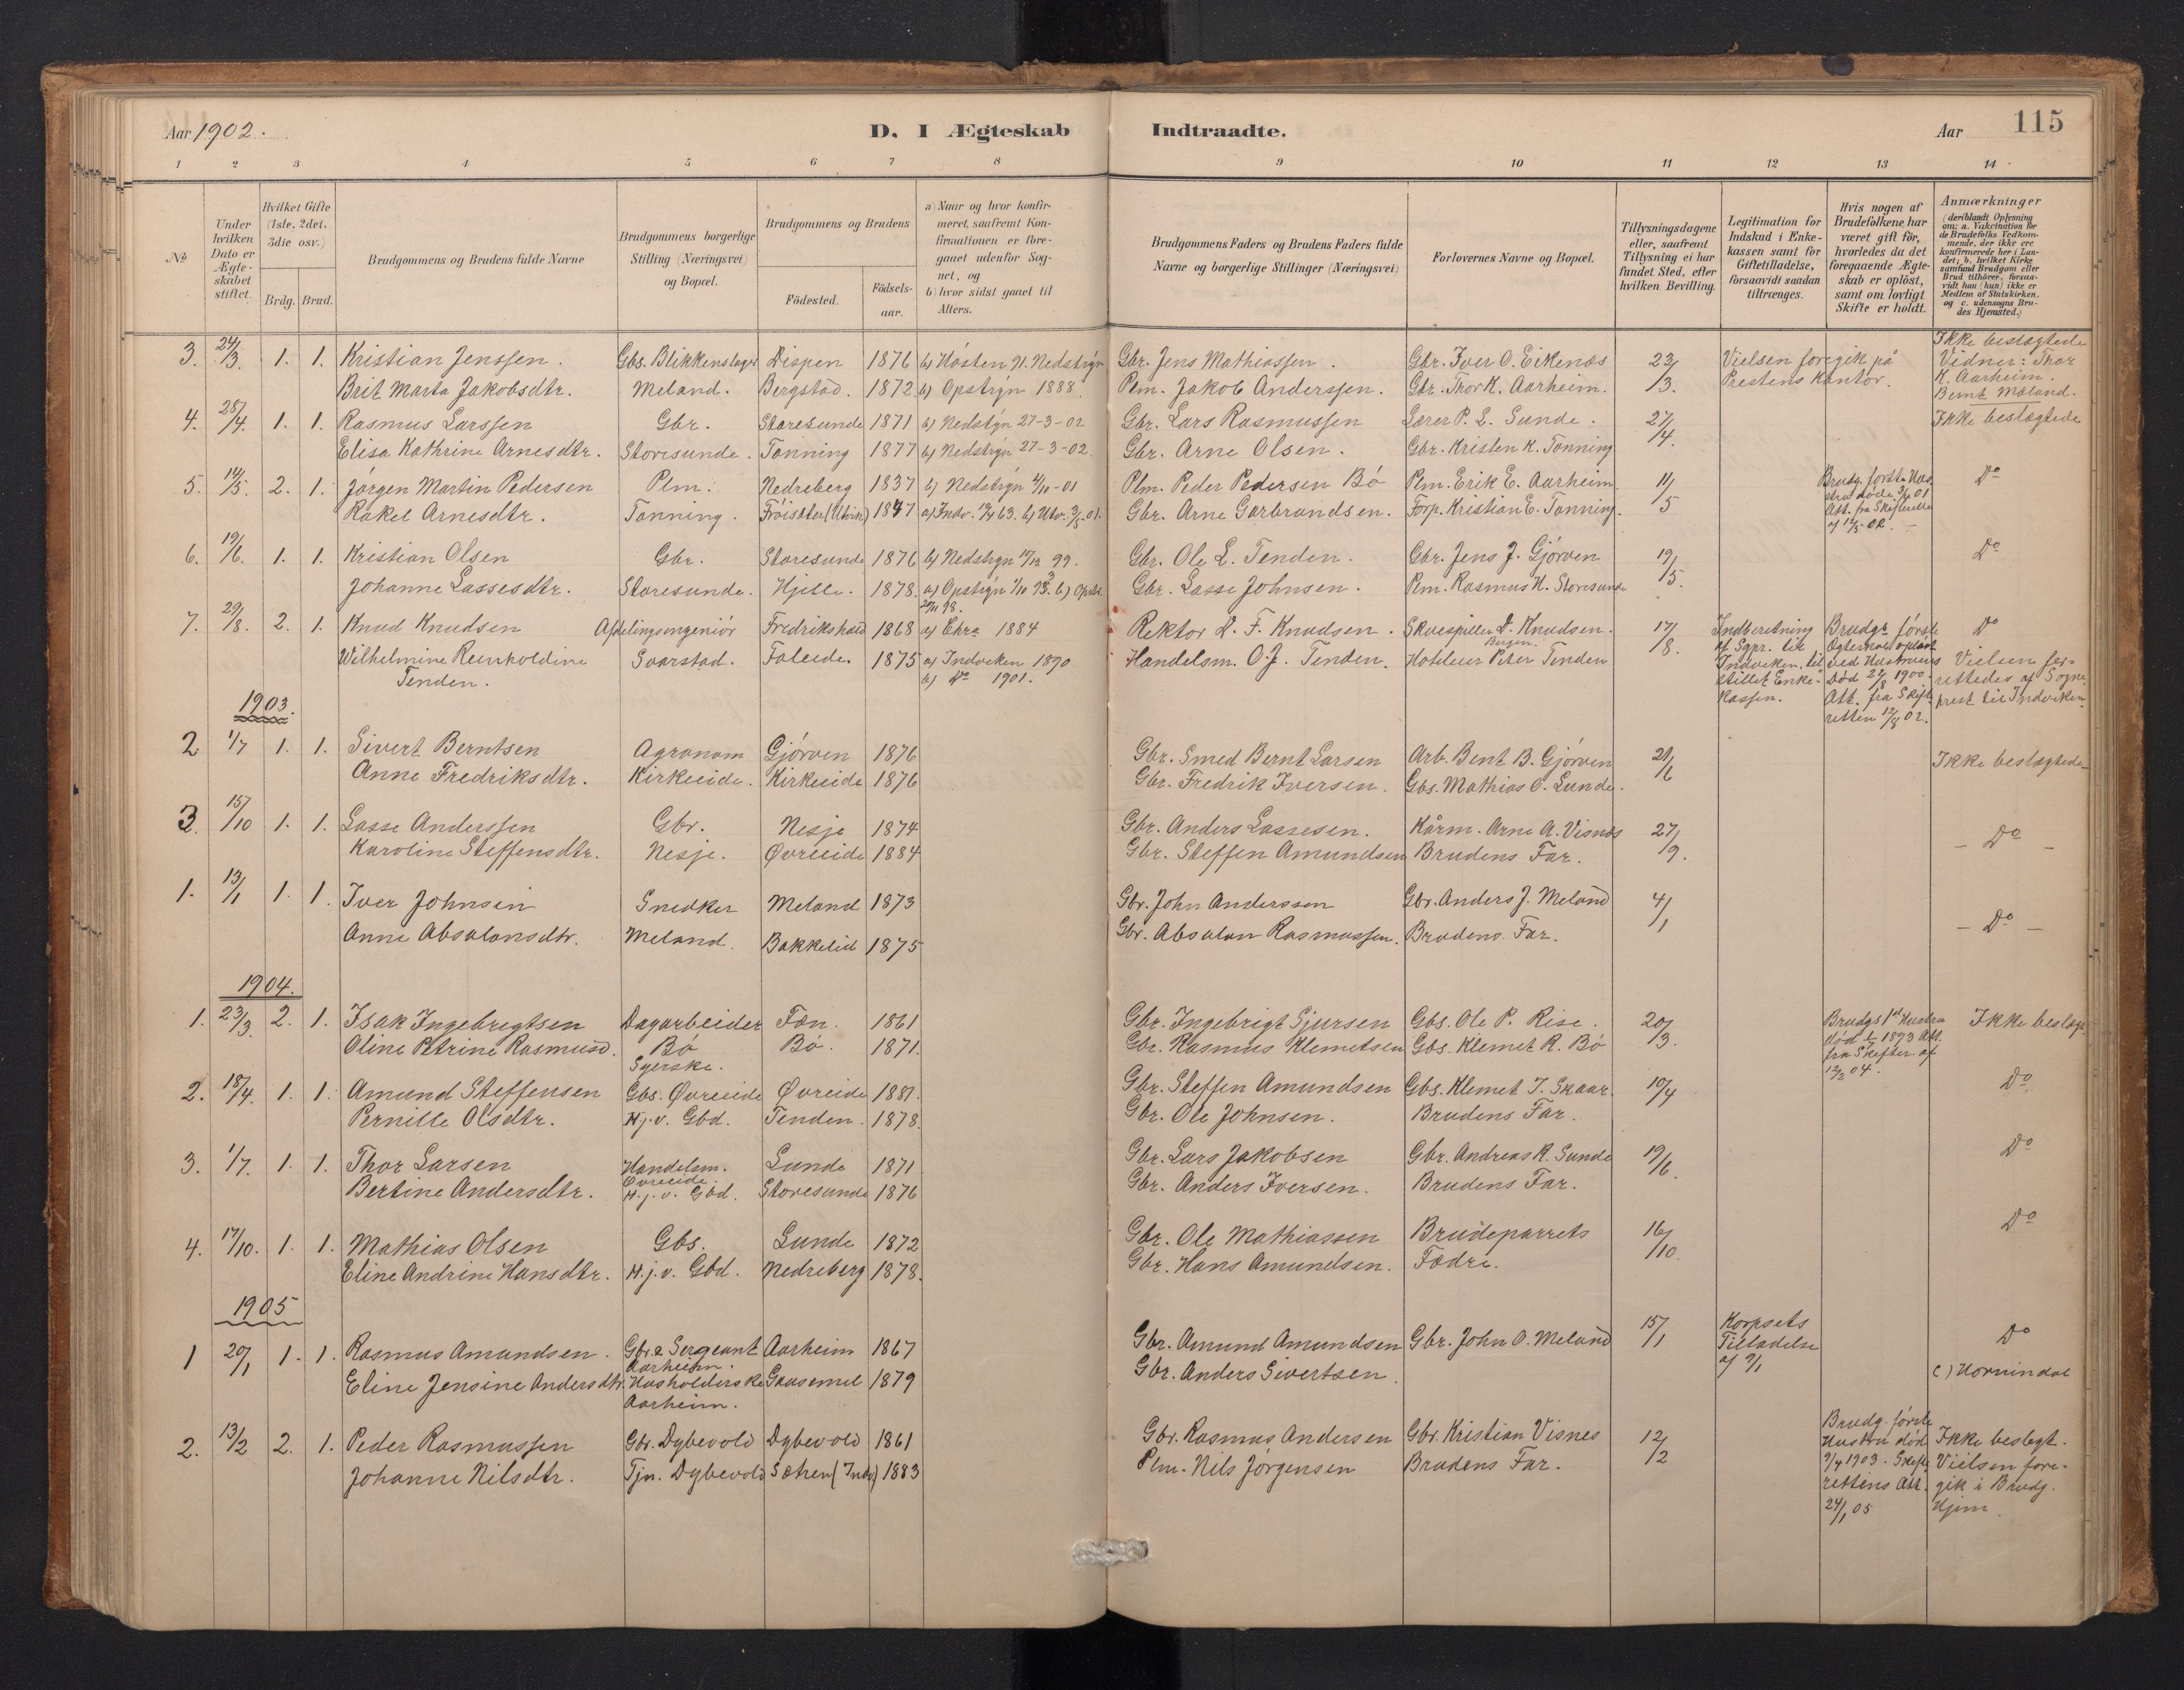 Aar 1902.
D. I Ægteskab Indtraadte.
Aar 115
1 2 3 4 5 6 7 8 9 10 11 12 13 14
No
Under hvilken Dato er Ægteskabet stiftet.
Hvilket Gifte (1ste, 2det, 3die osv.)
Brdg. Brud.
Brudgommens og Brudens fulde Navne
Brudgommens borgerlige Stilling (Næringsvei) og Bopæl.
Brudgommens og Brudens
Födested.
Födsels-aar.
a) Naar og hvor konfirmeret, saafremt Konfirmationen er foregaaet udenfor Sognet, og
b) hvor sidst gaaet til Alters.
Brudgommens Faders og Brudens Faders fulde Navne og borgerlige Stillinger (Næringsvei)
Forlovernes Navne og Bopæl.
Tillysningsdagene eller, saafremt Tillysning ei har fundet Sted, efter hvilken Bevilling.
Legitimation for Indskud i Enkekassen samt for Giftetilladelse, forsaavidt saadan tiltrænges.
Hvis nogen af Brudefolkene har været gift för, hvorledes da det foregaaende Ægteskab er oplöst, samt om lovligt Skifte er holdt.
Anmærkninger (deriblandt Oplysning om: a. Vakcination for de Brudefolks Vedkommende, der ikke ere konfirmerede her i Landet; b. hvilket Kirkesamfund Brudgom eller Brud tilhörer, forsaavidt han (hun) ikke er Medlem af Statskirken. og c. udensogns Brudes Hjemsted.)
3. 24/3. 1. 1. Kristian Jenssen. Gbs. Blikkenslager Dispen 1876 b) Hösten N. Nedstryn Gbr. Jens Mathiassen. Gbr. Iver O. Eikenæs 23/3. Vielsen foregik på Prestens Kontor. Ikke beslægtede Vidner: Thor K. Aarheim. Bernt Mæland.
Brit Marta Jakobsdtr. Meland. Bergstad. 1872 b) Opstryn 1888. Plm. Jakob Anderssen. Gbr. Thor K. Aarheim.
4. 28/4. 1. 1. Rasmus Larssen Gbr. Storesunde 1871 b) Nedstryn 27-3-02 Gbr. Lars Rasmussen Lærer P. L. Sunde. 27/4. Ikke beslægtede
Elisa Kathrine Arnesdtr. Storesunde. Tonning 1877 b) Nedstryn 27-3-02. Gbr. Arne Olsen. Gbr. Kristen K. Tonning
5. 14/5. 2. 1. Jörgen Martin Pedersen Plm. Nedreberg 1837 b) Nedstryn 4/10-01 Plm. Peder Pedersen Bö Plm. Erik E. Aarheim. 11/5 Brudg. første Hustru døde 3/2 01 Att. fra Skifteretten af 12/5 02. Do
Rakel Arnesdtr. Tonning. 1847 Gbr. Arne Garbrandsen. Forp. Kristian E. Tonning.
6. 19/6. 1. 1. Kristian Olsen Gbr. Storesunde 1876 b) Nedstryn 17/12 99. Gbr. Ole L. Tenden. Gbr. Jens J. Gjörven 19/5. Do
Johanne Lassesdtr. Storesunde. Hjelle. 1878. a) Opstryn 1/10 93. b) Opstr. Gbr. Lasse Johnsen. Plm. Rasmus H. Storesunde
7. 29/8. 2. 1. Knud Knudsen Afdelingsingeniör Fredrikshald 1868 a) Chra 1884 Rektor D. F. Knudsen. Skuespiller D. Knudsen. Bergen. 17/8. Indberetning af Sgpr. til Indviken, til stillet Enkekassen. Brudgr første Egteskab opløst ved Hustruens Død 22/8 1900. Att. fra Skifteretten 12/8 02. Do Vielsen forrettedes af Sogneprest til Indviken.
Wilhelmine Reinholdine Tenden. Svarstad. Faleide. 1875 a) Indviken 1890 b) Do 1901. Handelsm. O. J. Tenden. Hoteleier Peter Tenden
1903.
2 1/7 1. 1. Sivert Berntsen Agronom Gjörven 1876 Gbr. Smed Bernt Larsen Arb. Bent B. Gjörven 21/6 Ikke beslægtede
Anne Fredriksdtr. Kirkeeide. Kirkeeide 1876 Gbr. Fredrik Iversen. Gbs. Mathias O. Lunde.
3. 15/10 1. 1. Lasse Anderssen Gbr. Nesje 1874 Gbr. Anders Lassesen. Kårm. Arne A. Visnæs 27/9. - Do -
Karoline Steffensdtr. Nesje. Øvreeide 1884 Gbr. Steffen Amundsen Brudens Far.
1. 13/1 1. 1. Iver Johnsen Snedker Meland 1873 Gbr. John Anderssen Gbr. Anders J. Meland 4/1 - Do -
Anne Absalonsdtr. Meland. Bakkelid 1875 Gbr. Absalon Rasmussen. Brudens Far.
1904.
1. 23/3. 2. 1. Isak Ingebrigtsen Dagarbeider Fæn. 1861 Gbr. Ingebrigt Sjursen Gbs. Ole P. Rise. 20/3. Brudgs 1st Hustru død 1893 Att. fra Skifter. af 12/2 04. Ikke beslægt
Oline Petrine Rasmusd. Bö Syerske. Bö. 1871. Gbr. Rasmus Klemetsen Gbs. Klemet R. Bö
2. 18/4. 1. 1. Amund Steffensen Gbs. Øvreeide Øvreide 1881. Gbr. Steffen Amundsen Gbs. Klemet T. Skaar. 10/4 Do
Pernille Olsdtr. H.j.v. Gbd. Tenden. 1878. Gbr. Ole Johnsen. Brudens Far.
3. 1/7. 1. 1. Thor Larsen Handelsm. Øvreeide. Lunde 1871 Gbr. Lars Jakobsen Gbr. Andreas R. Sunde 19/6. Do
Bertine Andersdtr. H.j.v. Gbd. Storesunde 1876 Gbr. Anders Iversen. Brudens Far.
4. 17/10. 1. 1. Mathias Olsen Gbs. Lunde 1872 Gbr. Ole Mathiassen Brudeparrets 16/10. Do
Eline Andrine Hansdtr. H.j.v. Gbd. Nedreberg 1878. Gbr. Hans Amundsen. Fædre.
1905
1 20/1 1. 1. Rasmus Amundsen. Gbr. & Sergeant Aarheim. Aarheim 1867 Gbr. Amund Amundsen Gbr. John O. Meland 15/1 Korpsets Tilladelse af 9/1 Do
Eline Jensine Andersdtr. Husholderske Aarheim. Gausemel 1879 Gbr. Anders Sivertsen. c) Hornindal
2. 13/2 2. 1. Peder Rasmussen Gbr. Dybevold Dybevold 1861 Gbr. Rasmus Andersen Gbr. Kristian Visnes 12/2 Brudg. første Hustru død 9/4 1903. Skifterettens Att. 24/1 05 Ikke beslegt. Vielsen foregik i Brudg. Hjem.
Johanne Nilsdtr. Tjn. Dybevold Sætren (Indv) 1883 Plm. Nils Jørgensen Brudens Far.